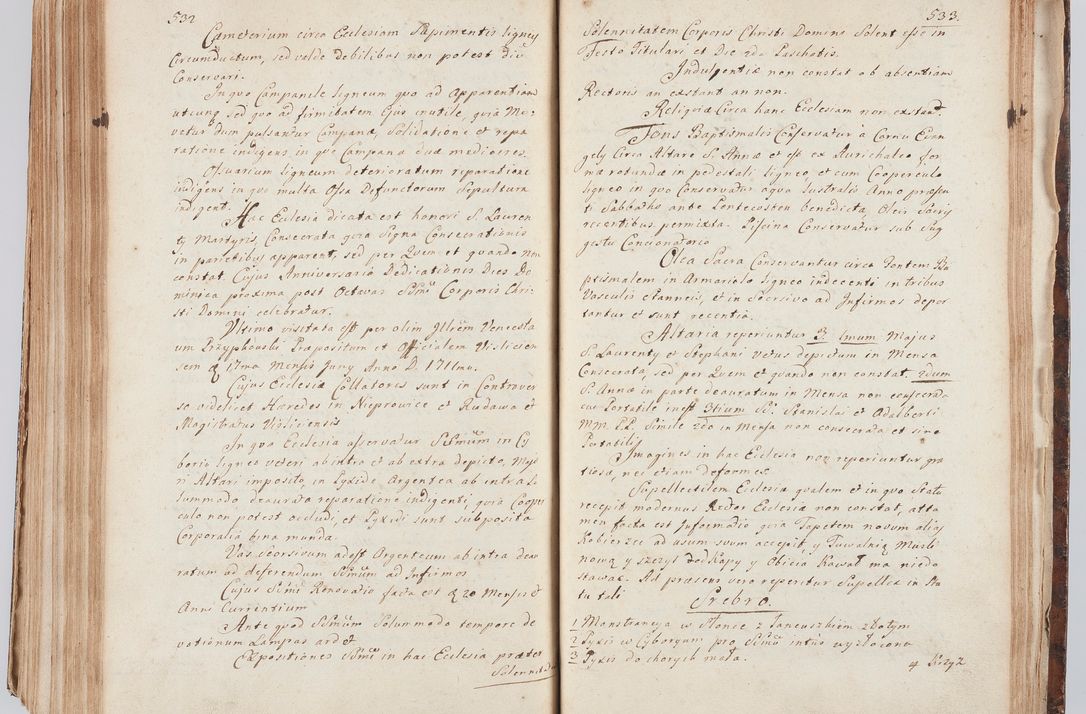 532
Cæmeterium circa Ecclesiam Sapimentis ligneis
Circumductum, sed valde debilibus non potest diu
Conservari.
In quo Campanile ligneum quo ad Apparentiam
utcunq sed quo ad firmitatem Ejus inutile, quia Mo-
vetur dum pulsantur Campanæ, Solidatione et repa
ratione indigens, in quo Campana duæ mediocres.
Ossuarium ligneum deterioratum reparatione
indigens in quo multa Ossa Defunctorum Sepultura
indigent.
Hæc Ecclesia dicata est honori S. Lauren
ty Martyris, Consecrata quia Signa Consecrationis
in parietibus apparent, sed per Quem et quando non
constat. Cujus Anniversaria Dedicationis Dies Do
minica proxima post Octavas SSmi Corporis Chri-
sti Domini celebratur.
Ultimo visitata est per olim Illrem Vencesla
um Przypkouski Præpositum et Officialem Vislicien
sem 17ma Mensis Juny Anno D. 1711mo.
Cujus Ecclesiæ Collatores sunt in Controver
so videlicet Hæredes in Nieprowice et Rudawa et
Magistratus Visliciensis
In qua Ecclesia asservatur SSmum in Cy
borio ligneo veteri ab intra et ab extra depicto, Majo
ri Altari imposito, in Pyxide Argentea ab intra So
lummodo deaurata reparatione indigenti, quia Cooper
culo non potest occludi, et Pyxidi sunt subposita
Corporalia bina munda.
Vas seorsivum adest Argenteum ab intra deau
ratum ad deferendum SSmum ad Infirmos
Cujus SSmi Renovatio facta est 20 Mensis et
Anni Currentium
Ante quod SSmum Solummodo tempore de
votionum Lampas ardet
Expositiones SSmi in hac Ecclesia præter
Solennita
533.
Solennitatem Corporis Christi Domino Solent esse in
Festo Titulari et Die 2da Paschatis.
Indulgentiæ non constat ob absentiam
Rectoris an exstant an non.
Reliquiæ Circa hanc Ecclesiam non exstant.
Fons Baptismalis Conservatur a Cornu Evan
gely Circa Altare S. Annæ et est ex Aurichalco for
ma rotunda in pedestali ligneo, et cum Cooperculo
ligneo in quo Conservatur aqua lustralis Anno præsen
ti Sabbatho ante Pentecosten benedicta, Oleis Sacris
recentibus permixta. Piscina Conservatur sub Sug
gestu Concionatorio
Olea Sacra Conservantur circa Fontem Ba
ptismalem in Armariolo ligneo indecenti in tribus
Vasculis stanneis, et in Seorsivo ad Infirmos depor
tantur et sunt recentia.
Altaria reperiuntur 3. 1mum Majus
S. Laurenty et Stephani vetus depictum in Mensa
Consecrata, sed per Quem et quando non constat. 2dum
S. Annæ in parte deauratum in Mensa non consecrata
cui Portatile inest 3tium SS. Stanislai et Adalberti
MM. PP. Simile 2do in Mensa non consecrata et sine
Portatili
Imagines in hac Ecclesia non reperiuntur gra
tiosæ, nec etiam deformes
Supellectilem Ecclesiæ qualem et in quo Statu
recepit modernus Rector Ecclesiæ non constat, atta
men facta est Informatio quia Tapetem novum alias
Kobierzec ad usum suum accepit, y Tuwalnią Muchi
nową, y szczyt Podkapy y Obicia Kawał ma niedo
stawać. Ad præsens vero reperitur Supellex in Sta
tu tali
Srebro.
1 Monstrancya w Słonce z Łancuszkiem złotym
2 Pyxis w Cyboryum pro SSmo intus wyzłocona
3 Pyxis do chorych mała.
4 Krzyż